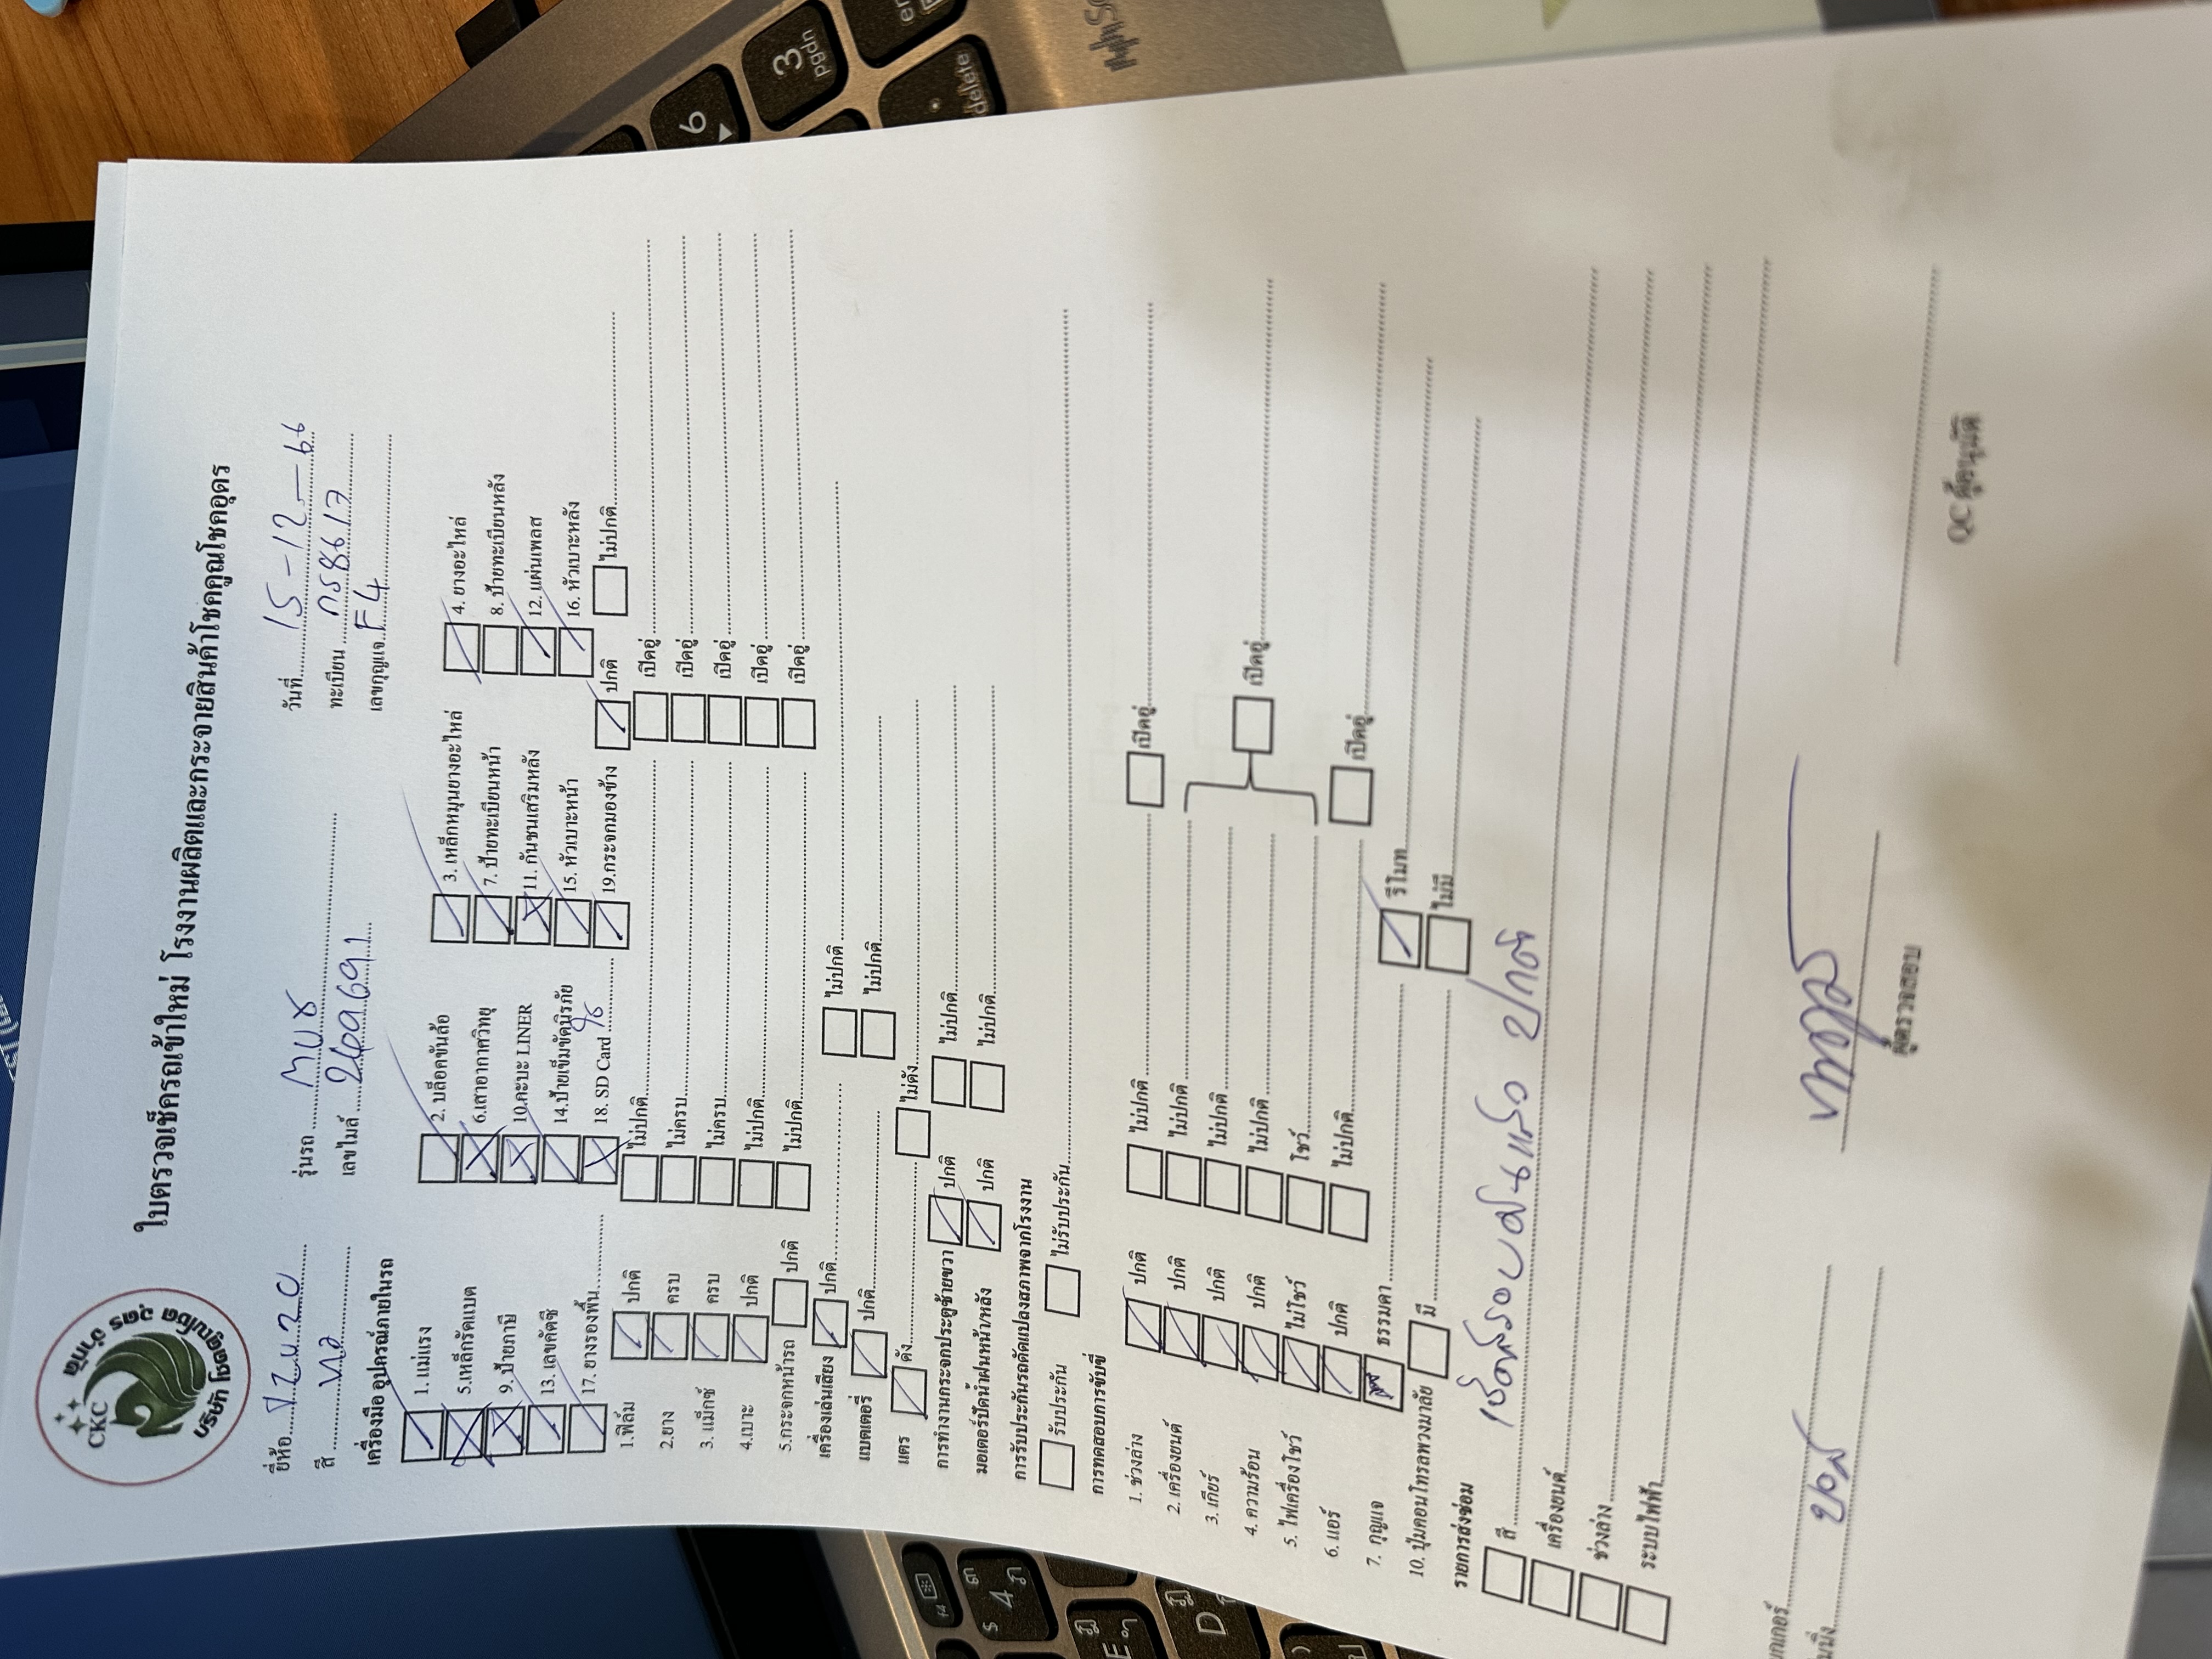 CKC
บริษัท โชคคูณโชค อุดร จำกัด
ใบตรวจเช็ครถเข้าใหม่ โรงงานผลิตและกระจายสินค้าโชคคูณโชคอุดร
ยี่ห้อ รุ่นรถ วันที่ 15-12-66
สี เลขไมล์ ทะเบียน
เลขกุญแจ F4
เครื่องมือ อุปกรณ์ภายในรถ
1. แม่แรง 2. บล็อคขันล้อ 3. เหล็กหมุนยางอะไหล่ 4. ยางอะไหล่
5.เหล็กรัดแบต 6.เสาอากาศวิทยุ 7. ป้ายทะเบียนหน้า 8. ป้ายทะเบียนหลัง
9. ป้ายภาษี 10.คะบะ LINER 11. กันชนเสริมหลัง 12. แผ่นเพลส
13. เลขคัตซี 14.ป้ายเข็มขัดนิรภัย 15. หัวเบาะหน้า 16. หัวเบาะหลัง
17. ยางรองพื้น 18. SD Card 19.กระจกมองข้าง ปกติ ไม่ปกติ
1.ฟิล์ม ปกติ ไม่ปกติ เปิดอยู่
2.ยาง ครบ ไม่ครบ เปิดอยู่
3. แม็กซ์ ครบ ไม่ครบ เปิดอยู่
4.เบาะ ปกติ ไม่ปกติ เปิดอยู่
5.กระจกหน้ารถ ปกติ ไม่ปกติ เปิดอยู่
เครื่องเล่นเสียง ปกติ ไม่ปกติ
แบตเตอรี่ ปกติ ไม่ปกติ
แตร ดัง ไม่ดัง
การทำงานกระจกประตูซ้ายขวา ปกติ ไม่ปกติ
มอเตอร์ปัดน้ำฝนหน้า/หลัง ปกติ ไม่ปกติ
การรับประกันรถดัดแปลงสภาพจากโรงงาน
รับประกัน ไม่รับประกัน
การทดสอบการขับขี่
1. ช่วงล่าง ปกติ ไม่ปกติ เปิดอยู่
2. เครื่องยนต์ ปกติ ไม่ปกติ
3. เกียร์ ปกติ ไม่ปกติ
4. ความร้อน ปกติ ไม่ปกติ เปิดอยู่
5. ไฟเครื่องโชว์ ไม่โชว์ โชว์
6. แอร์ ปกติ ไม่ปกติ เปิดอยู่
7. กุญแจ ธรรมดา รีโมท
10. ปุ่มคอนโทรลพวงมาลัย มี ไม่มี
รายการส่งซ่อม
สี
เครื่องยนต์
ช่วงล่าง
ระบบไฟฟ้า
ผู้ตรวจสอบ
QC ผู้อนุมัติ
3
pgdn
6
delete
f4
$
4
E
D